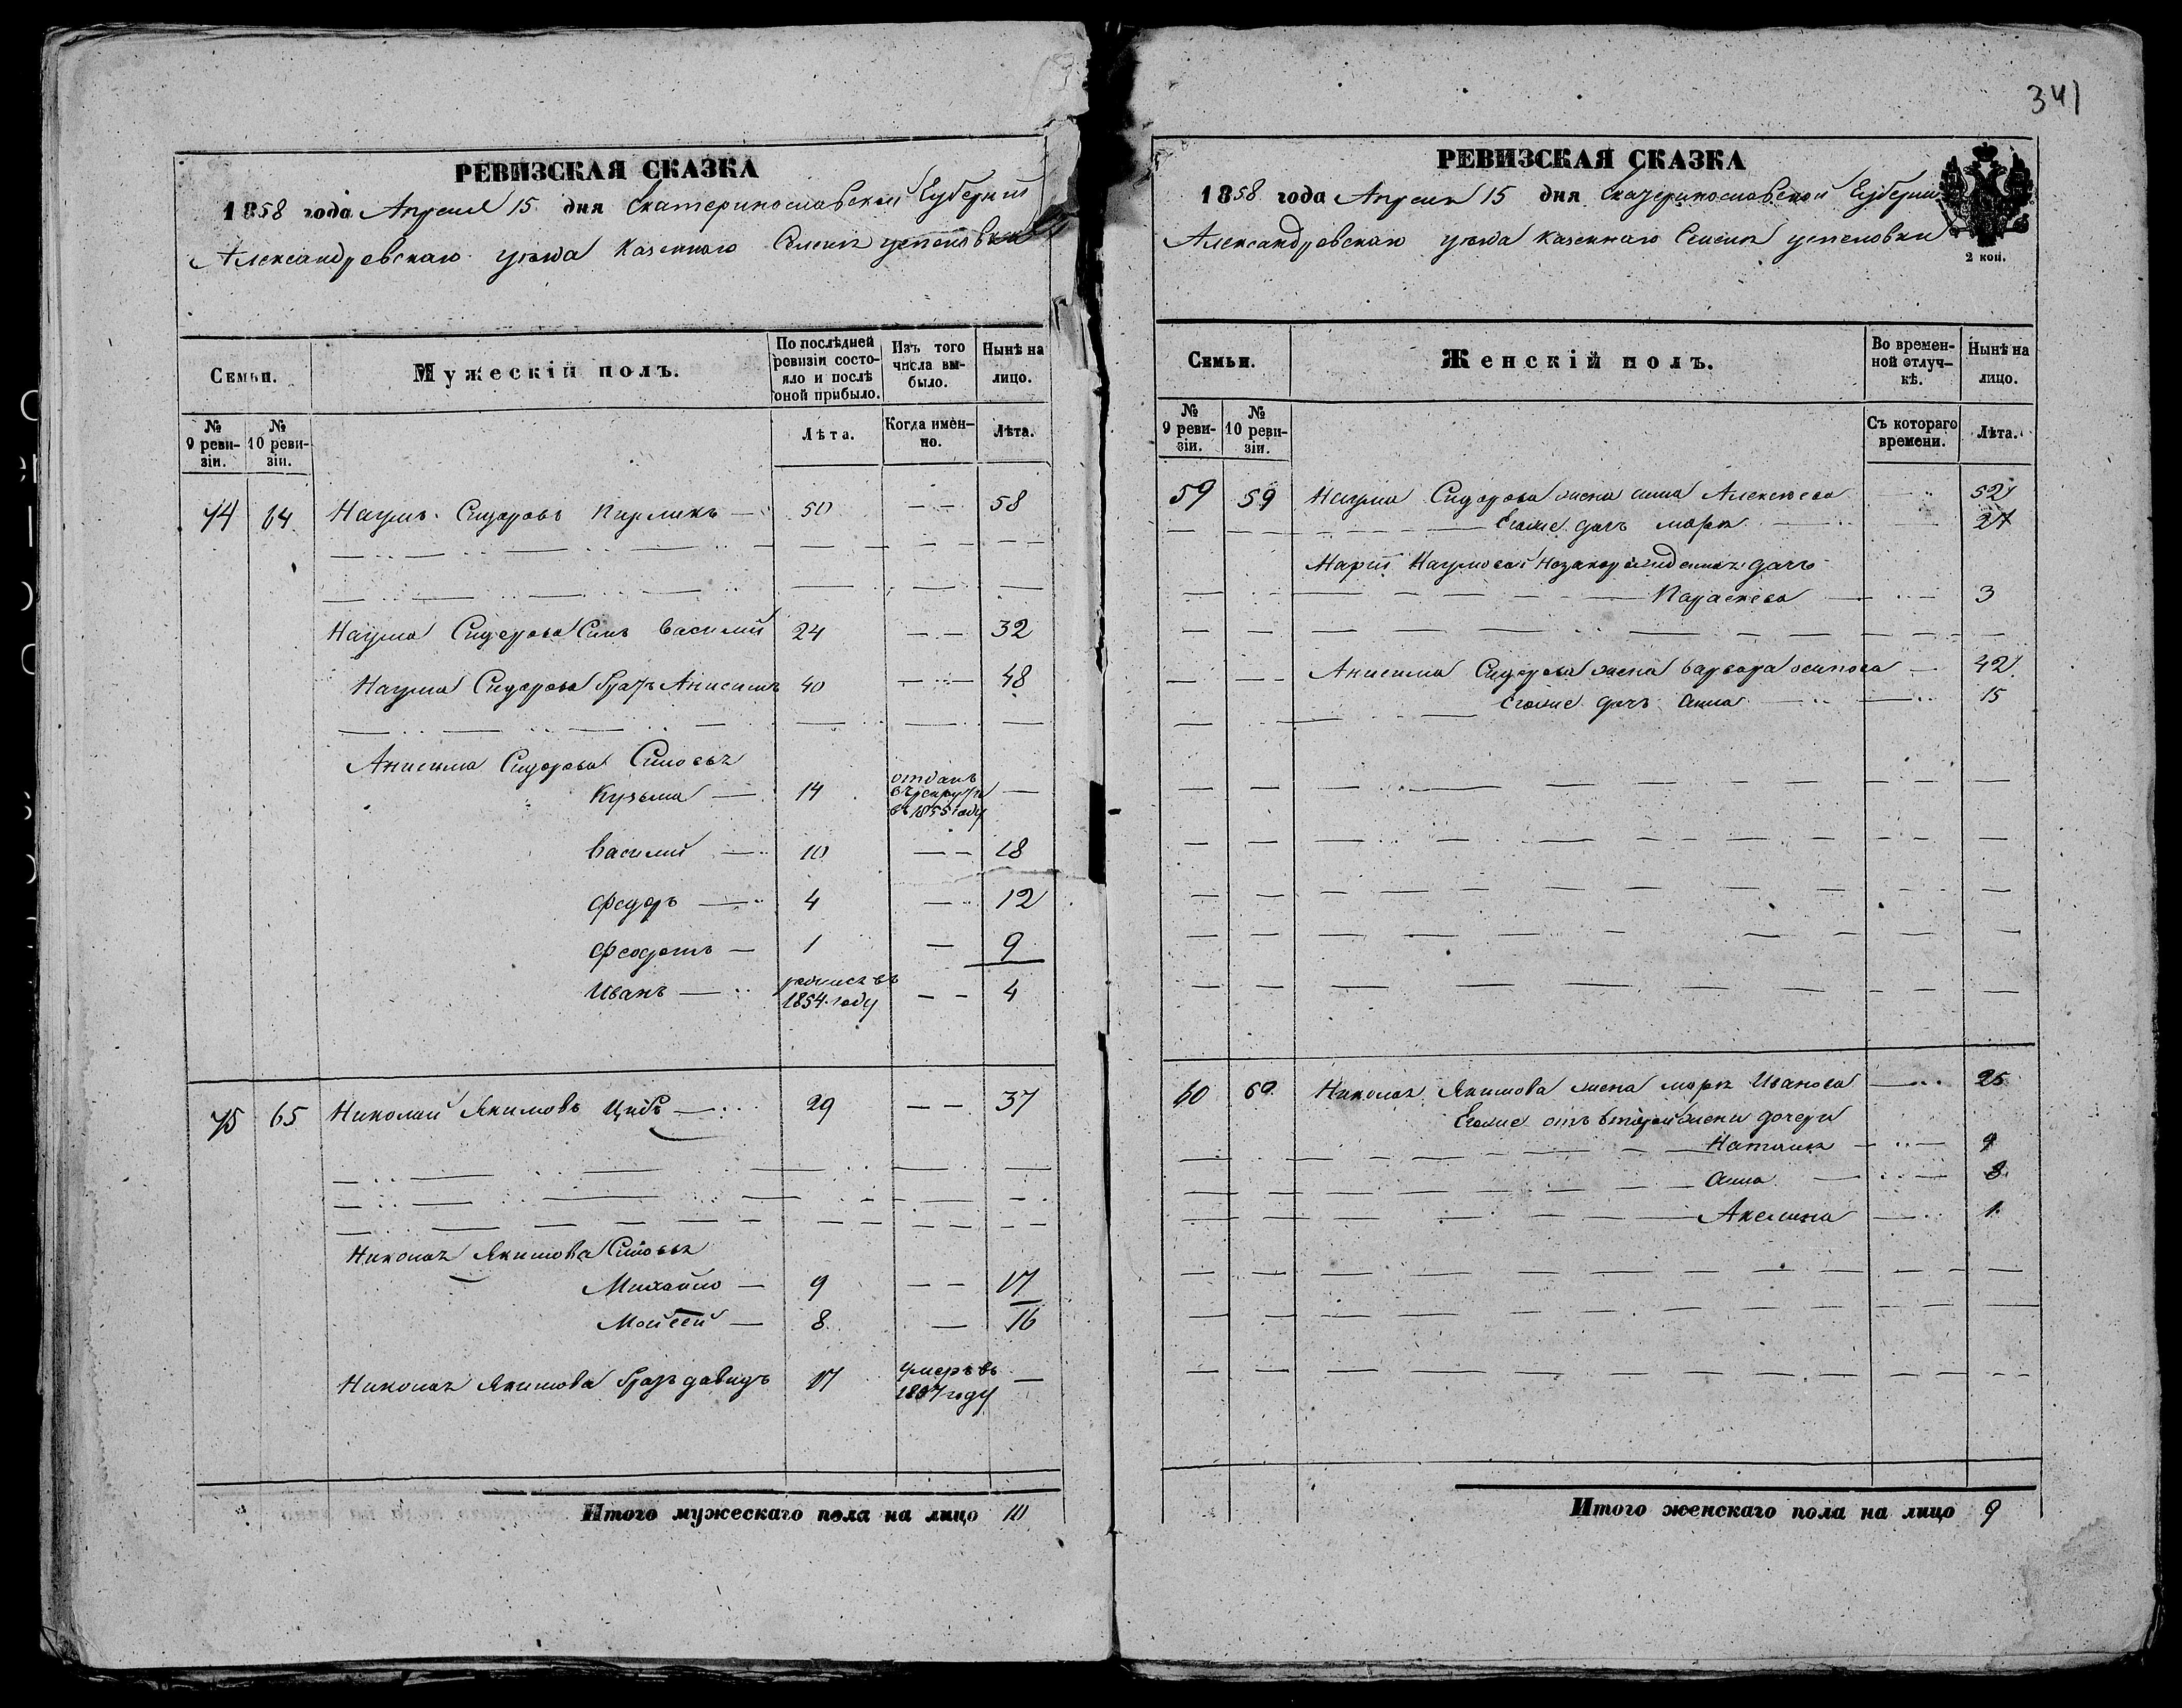 341
РЕВИЗСКАЯ СКАЗКА
1858 года Апреля 15 дня Екатеринославской Губернии
Александровскаго уезда казеннаго Селения успеновки
Семьи.
Мужескій полъ.
По послѣдней ревизіи состояло и послѣ оной прибыло.
Изъ того числа выбыло.
Нынѣ на лицо.
№ 9 ревизіи.
№ 10 ревизіи.
Лѣта.
Когда именно.
Лѣта.
74 64 Наумъ Сидоровъ Пирликъ 50 58
Наума Сидорова Синъ Василий 24 32
Наума Сидорова братъ Анисимъ 40 48
Анисима Сидорова Синовья
Кузьма 14 отданъ въ рекруты въ 1855 году
Василий 10 18
Федоръ 4 12
Феодотъ 1 9
Иванъ родился въ 1854 году 4
75 65 Николай Якимовъ 29 37
Николая Якимова Синовья
Михайло 9 17
Моисей 8 16
Николая Якимова братъ давидъ 17 умеръ въ году
Итого мужескаго пола на лицо 10
РЕВИЗСКАЯ СКАЗКА
1858 года Апреля 15 дня Екатеринославской Губернии
Александровскаго уезда казеннаго Селения успеновки
2 коп.
Семьи.
Женскій полъ.
Во временной отлучкѣ.
Нынѣ на лицо.
№ 9 ревизіи.
№ 10 ревизіи.
Съ котораго времени.
Лѣта.
59 59 Наума Сидорова жена анна Алексеева 52
Егоже дочь марья 27
Марии Наумовой незакорожденная дочь
Параскева 3
Анисима Сидорова жена варвара осипова 42
Егоже дочь анна 15
60 60 Николая Якимова жена марья Иванова 25
Егоже отъ второй жены дочери
Наталия 9
анна 3
Акелина 1
Итого женскаго пола на лицо 9